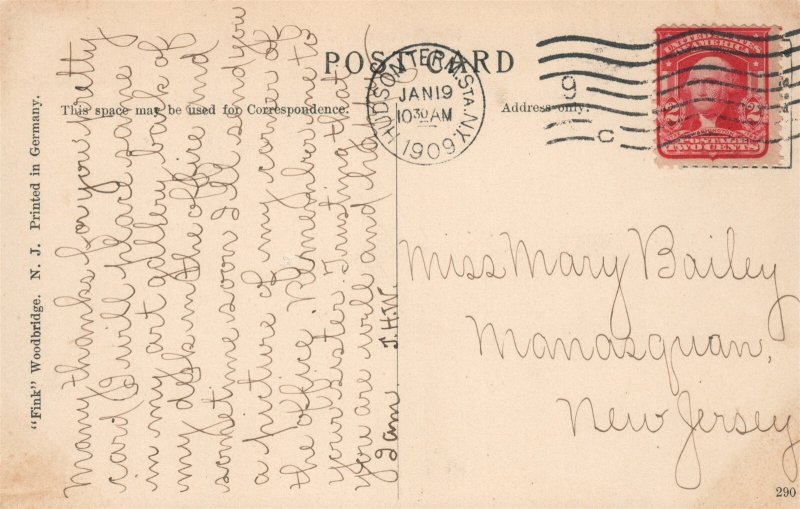 POST CARD
This space may be used for Correspondence.
Address only.
HUDSON TERM. STA. N.Y.
JAN 19
10 30 AM
1909
9
C
UNITED STATES
OF AMERICA
2 2
POSTAGE
TWO CENTS
Many thanks for your pretty
card. I will place one
in my art gallery back of
my desk in the office and
sometime soon I'll send you
a picture of my corner of
the office. Remember me to
your sister. Trusting that
you are well and happy
I am J.H.W.
Miss Mary Bailey
Manasquan,
New Jersey
"Fink" Woodbridge. N. J. Printed in Germany.
290